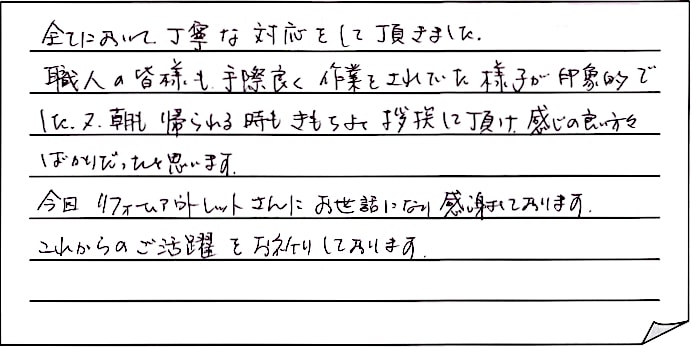 全てにおいて、丁寧な対応をして頂きました。
職人の皆様も、手際良く作業をされていた様子が印象的で
した。又、朝も帰られる時もきもちよく挨拶して頂け、感じの良い方々
ばかりだったと思います。
今回リフォームアウトレットさんにお世話になり感謝しております。
これからのご活躍をお祈りしております。